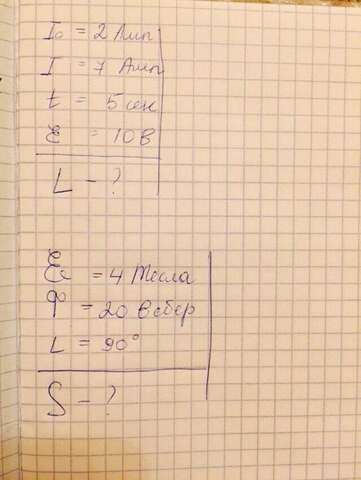 I₀ = 2 Амп
I = 7 Амп
t = 5 сек
Ɛ = 10 В
L - ?
= 4 Тесла
Ф = 20 Вебер
L = 90°
S - ?